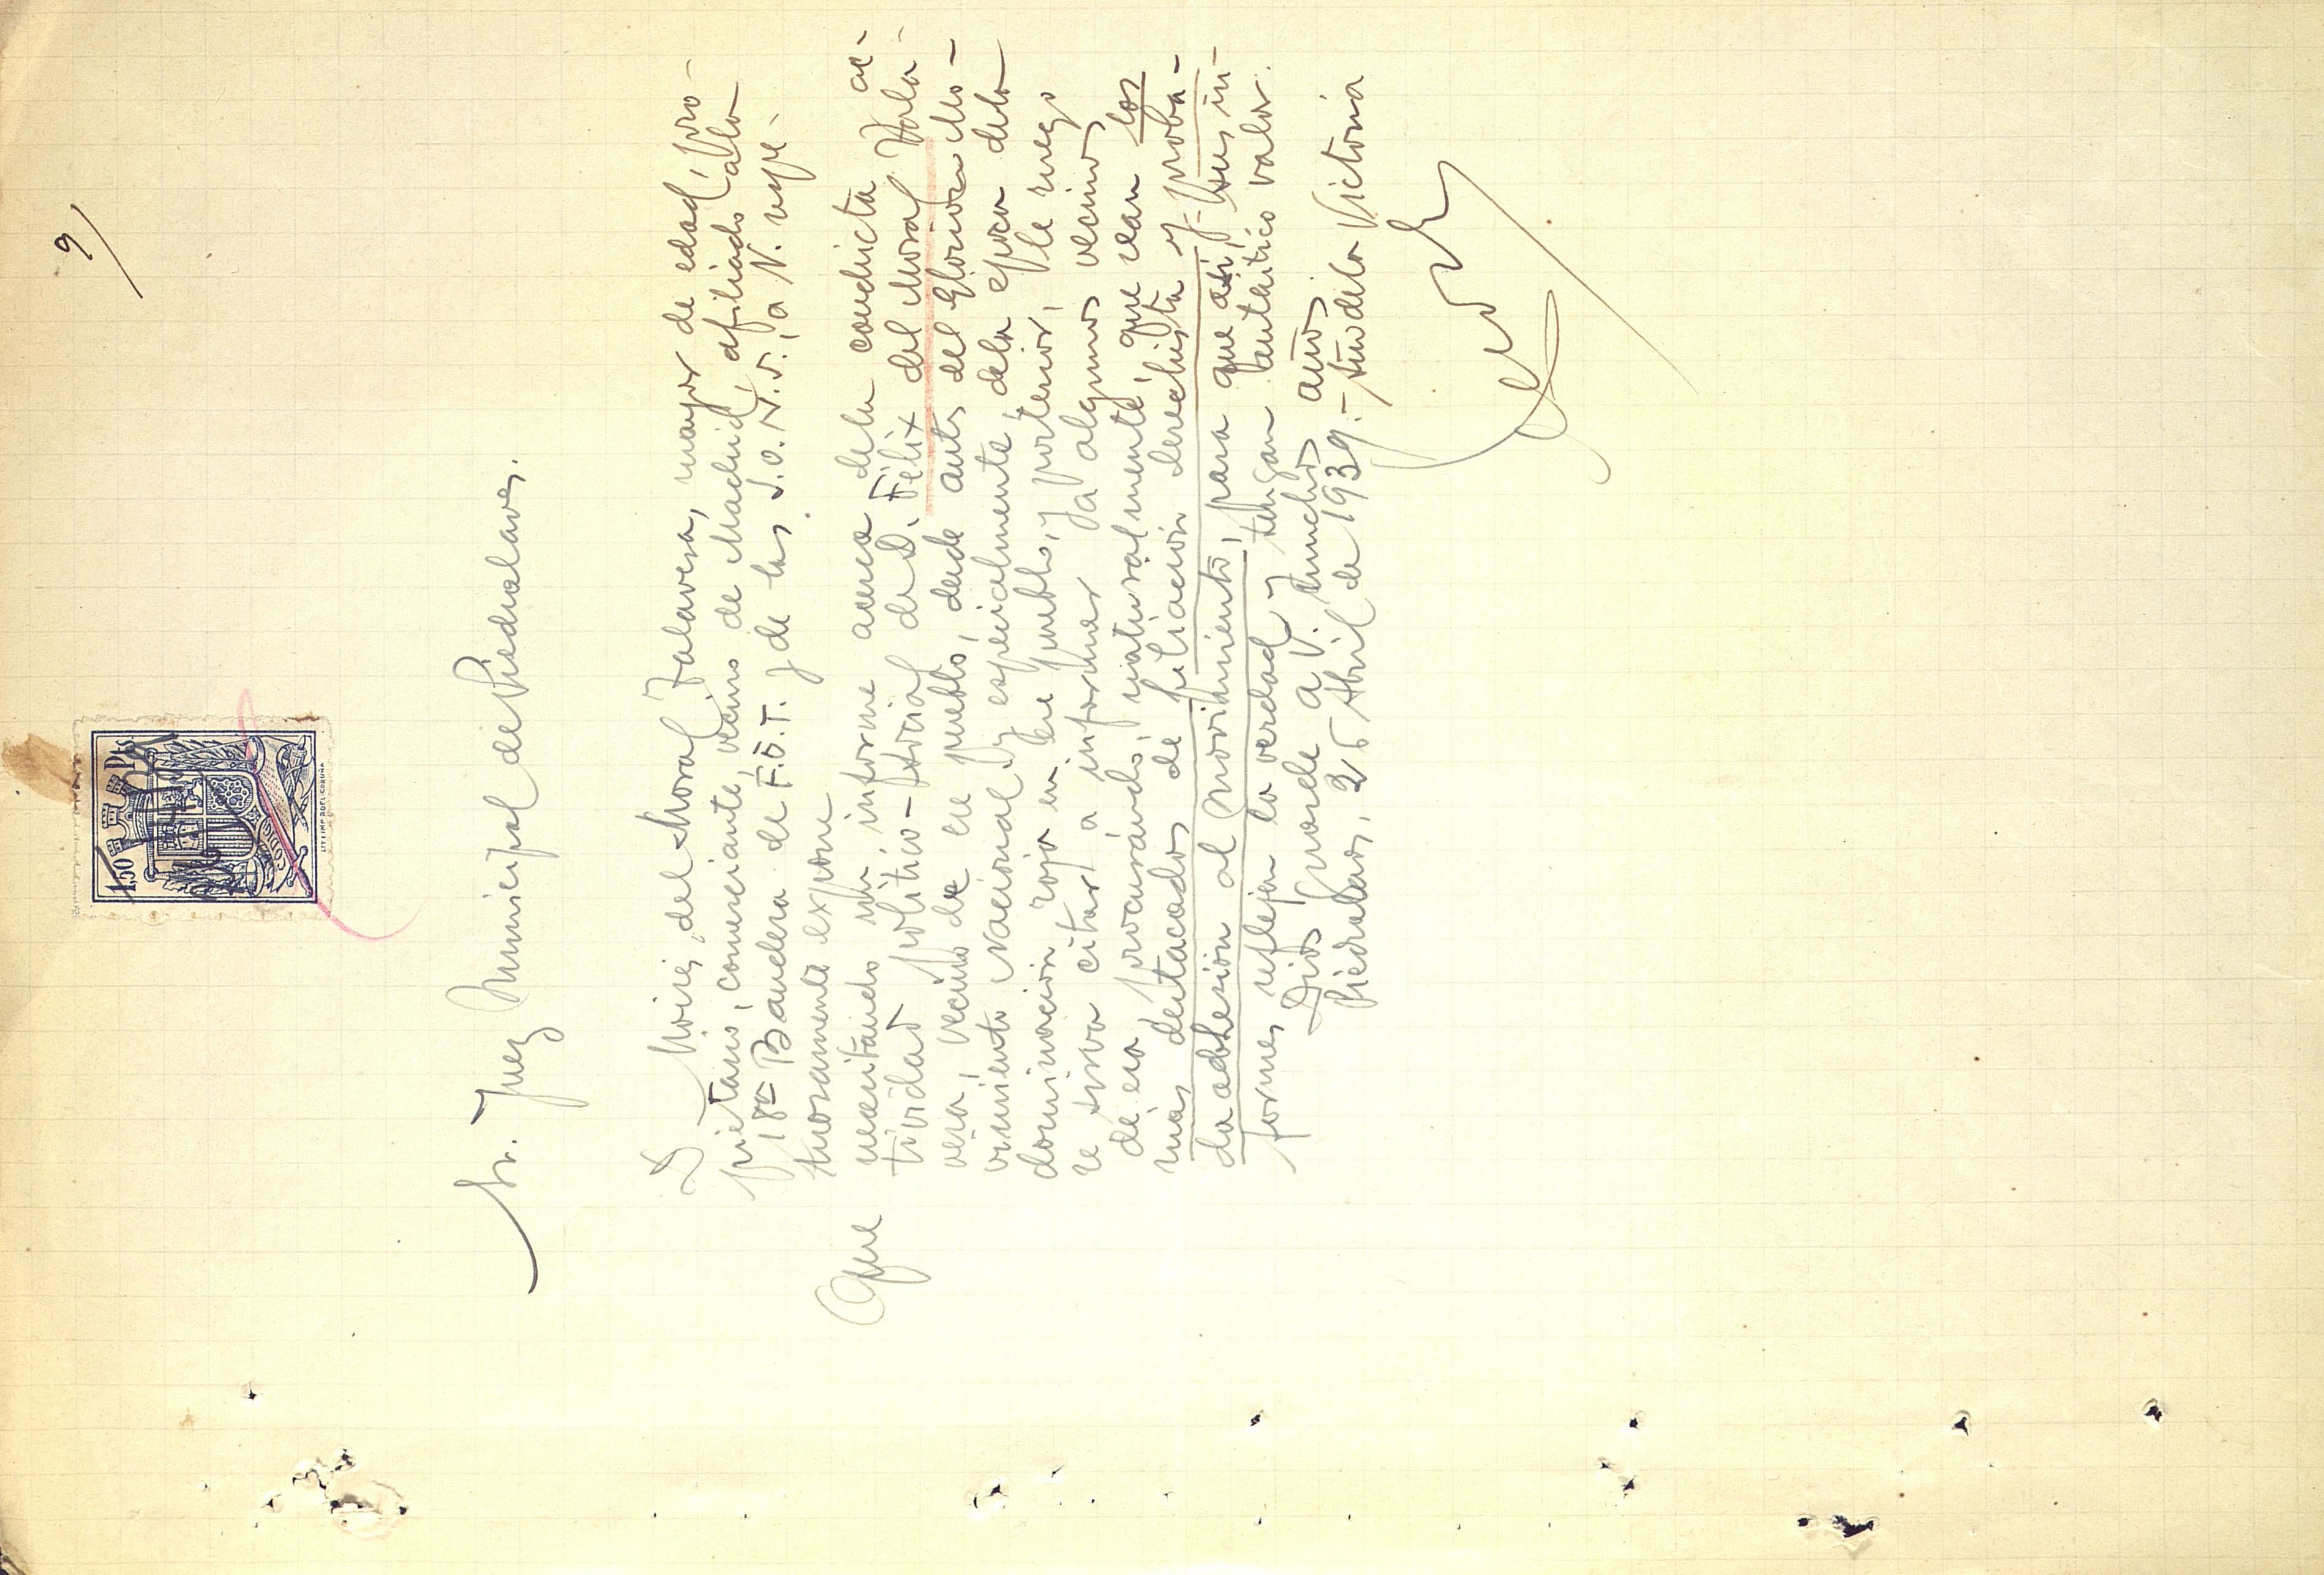 9
1,50 Pts
CODIGO
LIT E IMP ROEL-CORUÑA
Sr. Juez Municipal de Piedralaves.
D. Moises del Moral Talavera, mayor de edad, pro-
pietario, comerciante, vecino de Madrid, afiliado a la
18ª Bandera de F.E.T. y de las J.O.N.S., a V. respe-
tuosamente expone
Que necesitando un informe acerca de la conducta ac-
tividad político-social de D. Felix del Moral Tala-
vera, vecino de ese pueblo, desde antes del Glorioso Mo-
vimiento Nacional y especialmente, de la época de la
dominación roja en ese pueblo, y posterior, le ruego
se sirva citar a informar ya algunos vecinos
de esa procurándo, naturalmente, que sean los
mas destacados de filiación derechista y proba-
da adhesión al movimiento, para que asi, sus in-
formes reflejen la verdad y tengan auténtico valor.
Dios guarde a V. muchos años.
Piedralaves, 26 Abril de 1939.- Año de la Victoria